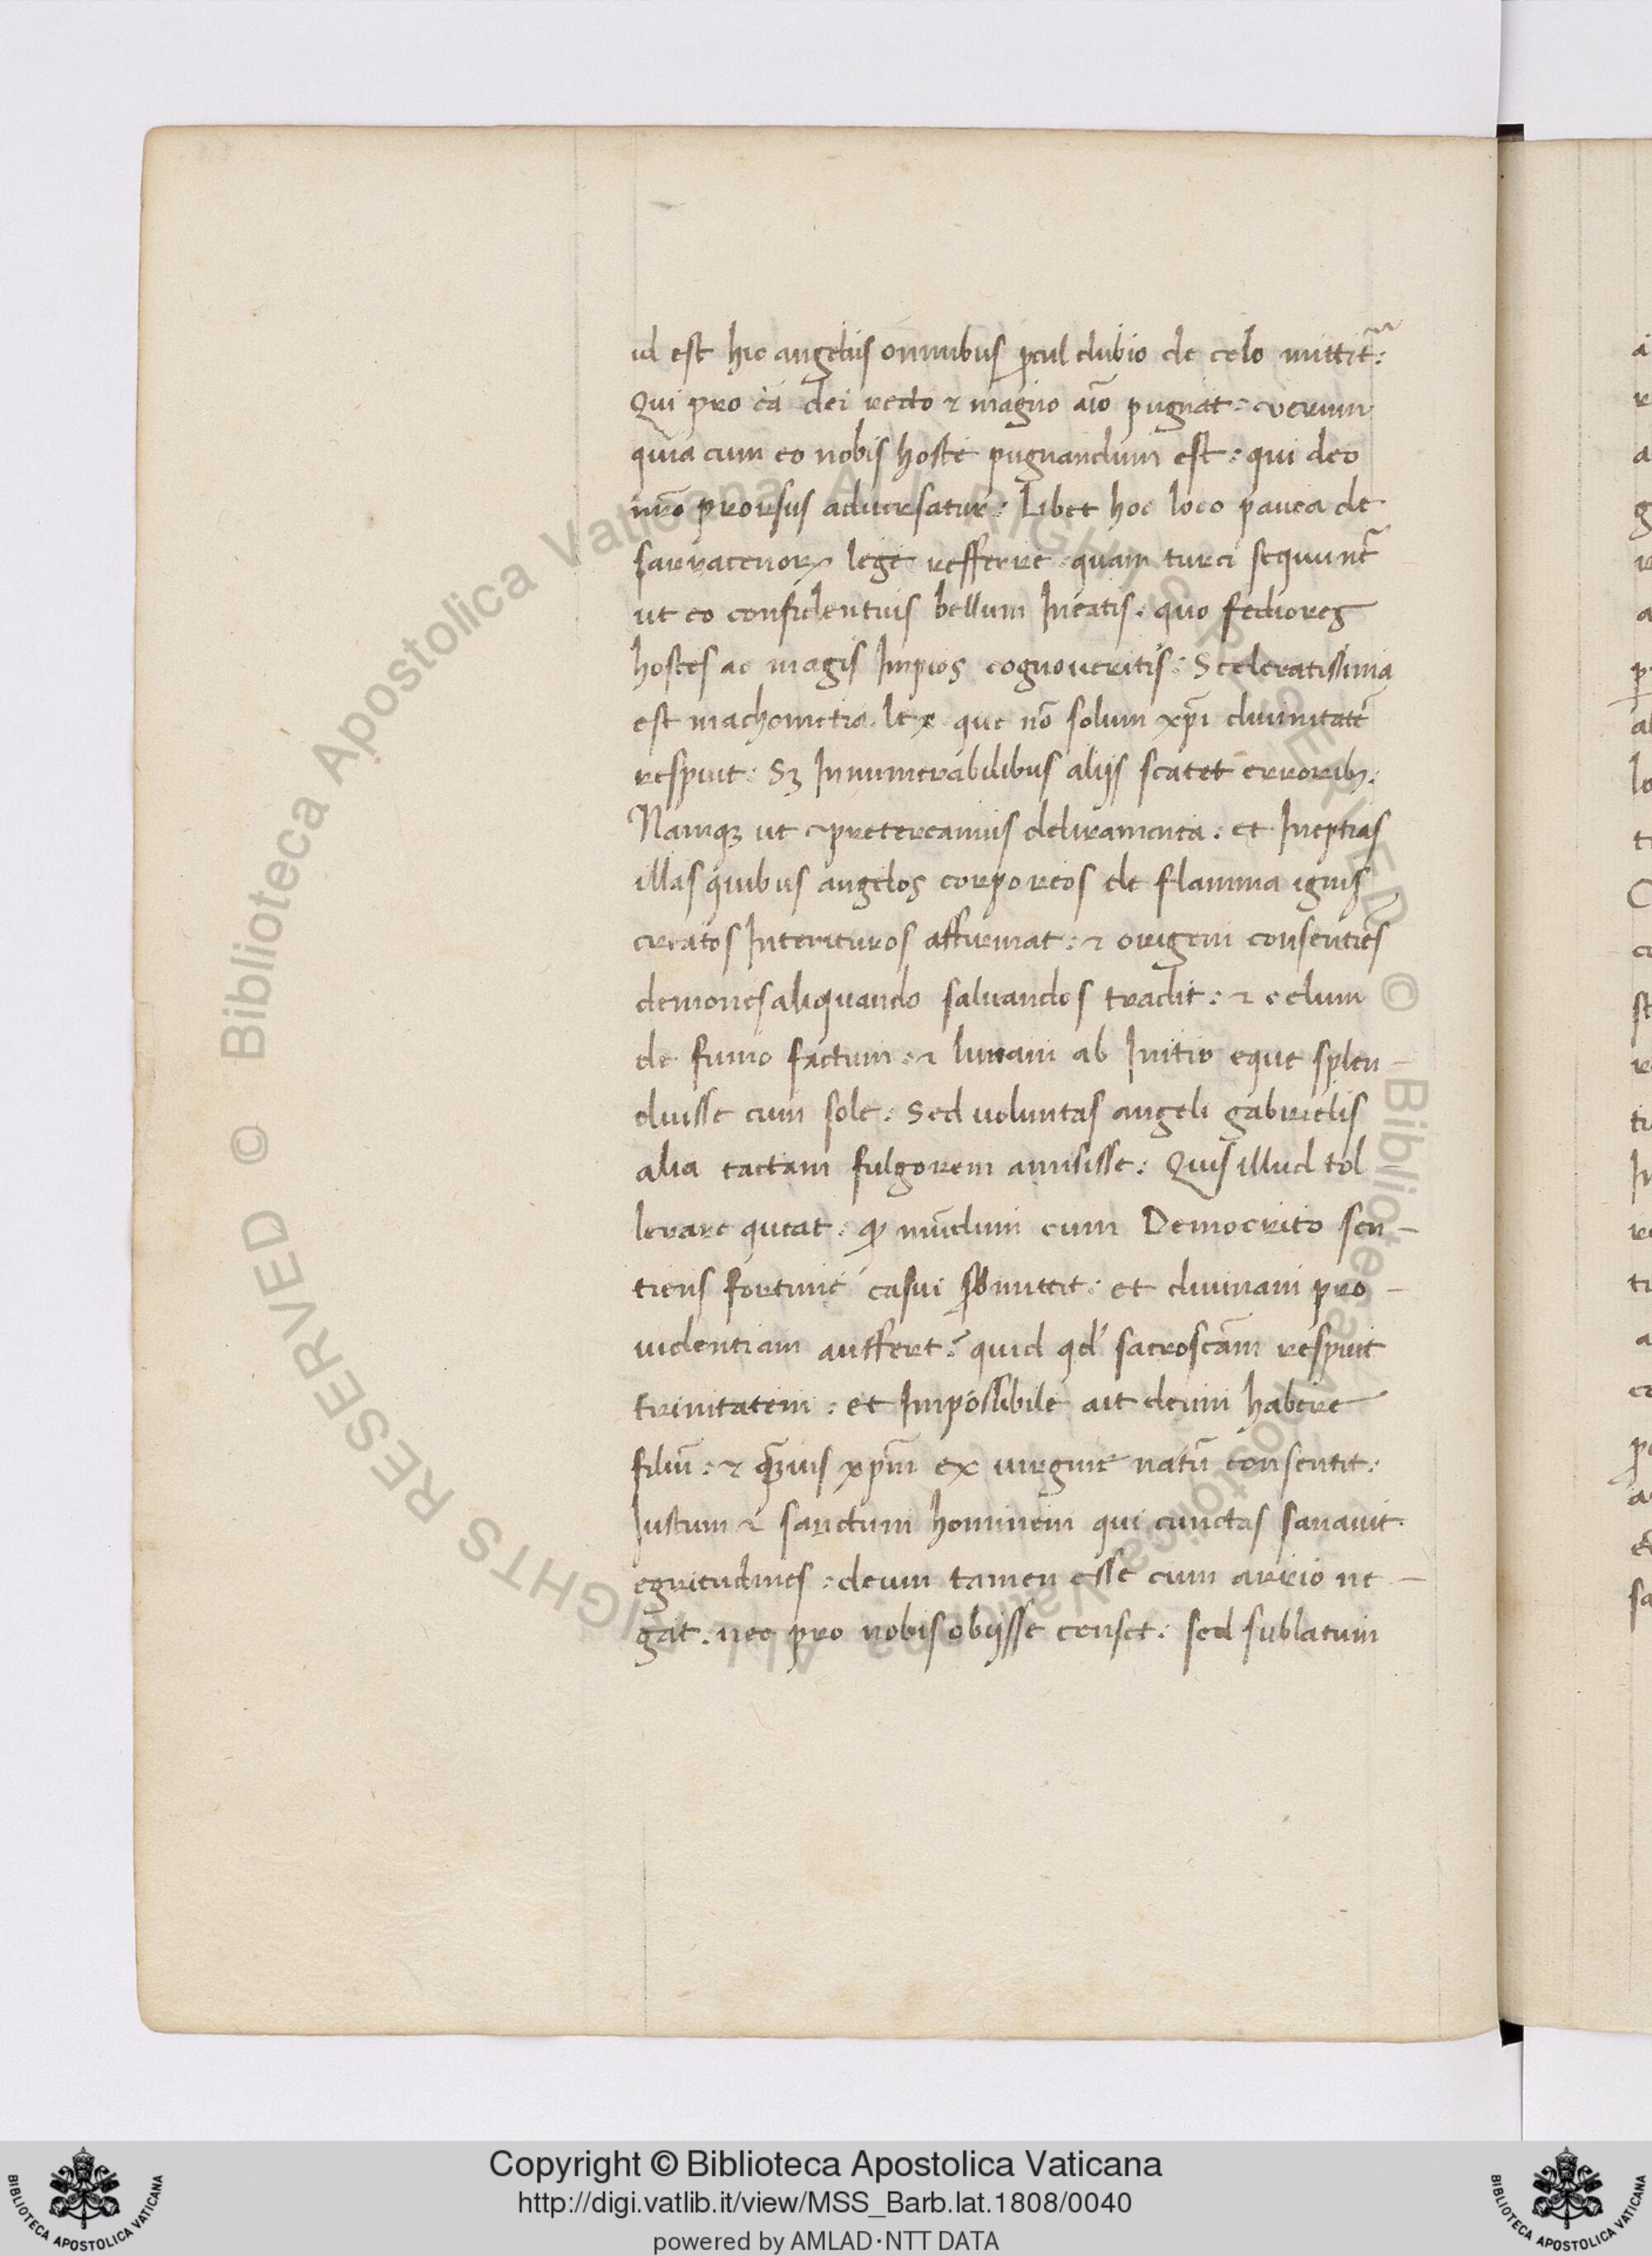 id est hic angelus omnibus ꝓcul dubio de celo mittit᷑:
Qui pro cā dei recto ⁊ magno aīo pugnat: verum
quia cum eo nobis hoste pugnandum est: qui deo
nr̄o prorsus aduersatur: Libet hoc loco pauca de
sarracenoꝝ lege refferre quam turci sequunt᷑
ut eo confidentius bellum Ineatis. quo fediores
hostes ac magis Impios cognoueritis: Sceleratissima
est machometia lex que nō solum xp̄i diuinitatē
respuit: Sꝫ Innumerabilibus alijs scatet erroribꝫ.
Namqꝫ ut pretereamus deliramenta: et Ineptias
illas quibus angelos corporeos de flamma ignis
creatos Interituros affirmat: ⁊ origeni consentiēs
demones aliquando saluandos tradit: ⁊ celum
de fumo factum: ⁊ lunam ab Initio eque splen-
duisse cum sole: Sed uoluntas angeli gabrielis
alia tactam fulgorem amisisse: Quis illud tol
lerare queat. ꝙ mūdum cum Democrito sen-
tiens fortune casui sbmittit: et diuinam pro-
uidentiam auffert? quid qd́ sacroscāam respuit
trinitatem: et Impossibile ait deum habere
filiū: ⁊ qꝫuis xp̄m ex uirgine natū consentit:
Iustum ⁊ sanctum hominem qui cunctas sanauit
egritudines: deum tamen esse cum arrio ne-
gat. nec pro nobis obijsse censet: sed sublatum
a
r
a
g
r
a
p
al
lo
t
C
c
st
r
ti
In
re
tu
a
ce
po
a
&
sa
© Biblioteca Apostolica Vaticana ALL RIGHTS RESERVED © Biblioteca Apostolica Vaticana ALL RIGHTS RESERVED
Copyright © Biblioteca Apostolica Vaticana
http://digi.vatlib.it/view/MSS_Barb.lat.1808/0040
powered by AMLAD·NTT DATA
BIBLIOTECA APOSTOLICA VATICANA
BIBLIOTECA APOSTOLICA VATICANA